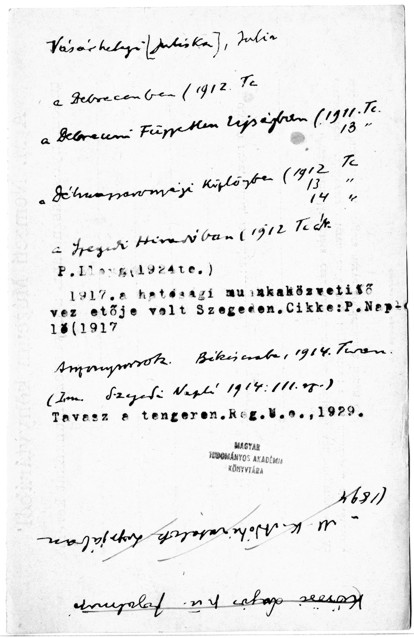 Vásárhelyi [Juliska], Julia
a Debrecenben (1912. Tc
a Debreceni Független Ujságban (1911. Tc.
13 "
a Délmagyarországi Közlönyben (1912 Tc
13 "
14 "
a Szegedi Hiradóban (1912 Tcák
P. (1924tc.)
1917.a hatósági munkaközvetitő
vezetője volt Szegeden.Cikke:P.Napló
(1917
Asszonysorsok. Békéscsaba, 1914. Tevan.
(Ism. Szegedi Napló 1914: III.
Tavasz a tengeren.Reg.U.o.,1929.
MAGYAR
TUDOMÁNYOS AKADÉMIA
KÖNYVTÁRA
(1894
M. K.